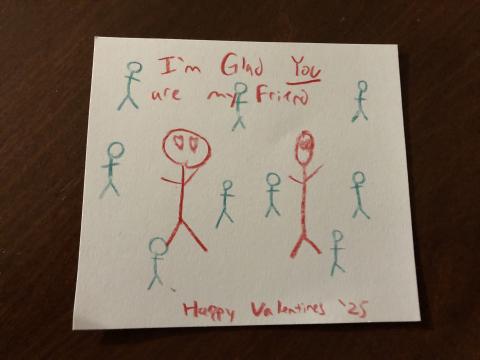 I'm Glad You
are my Friend
Happy Valentines '25